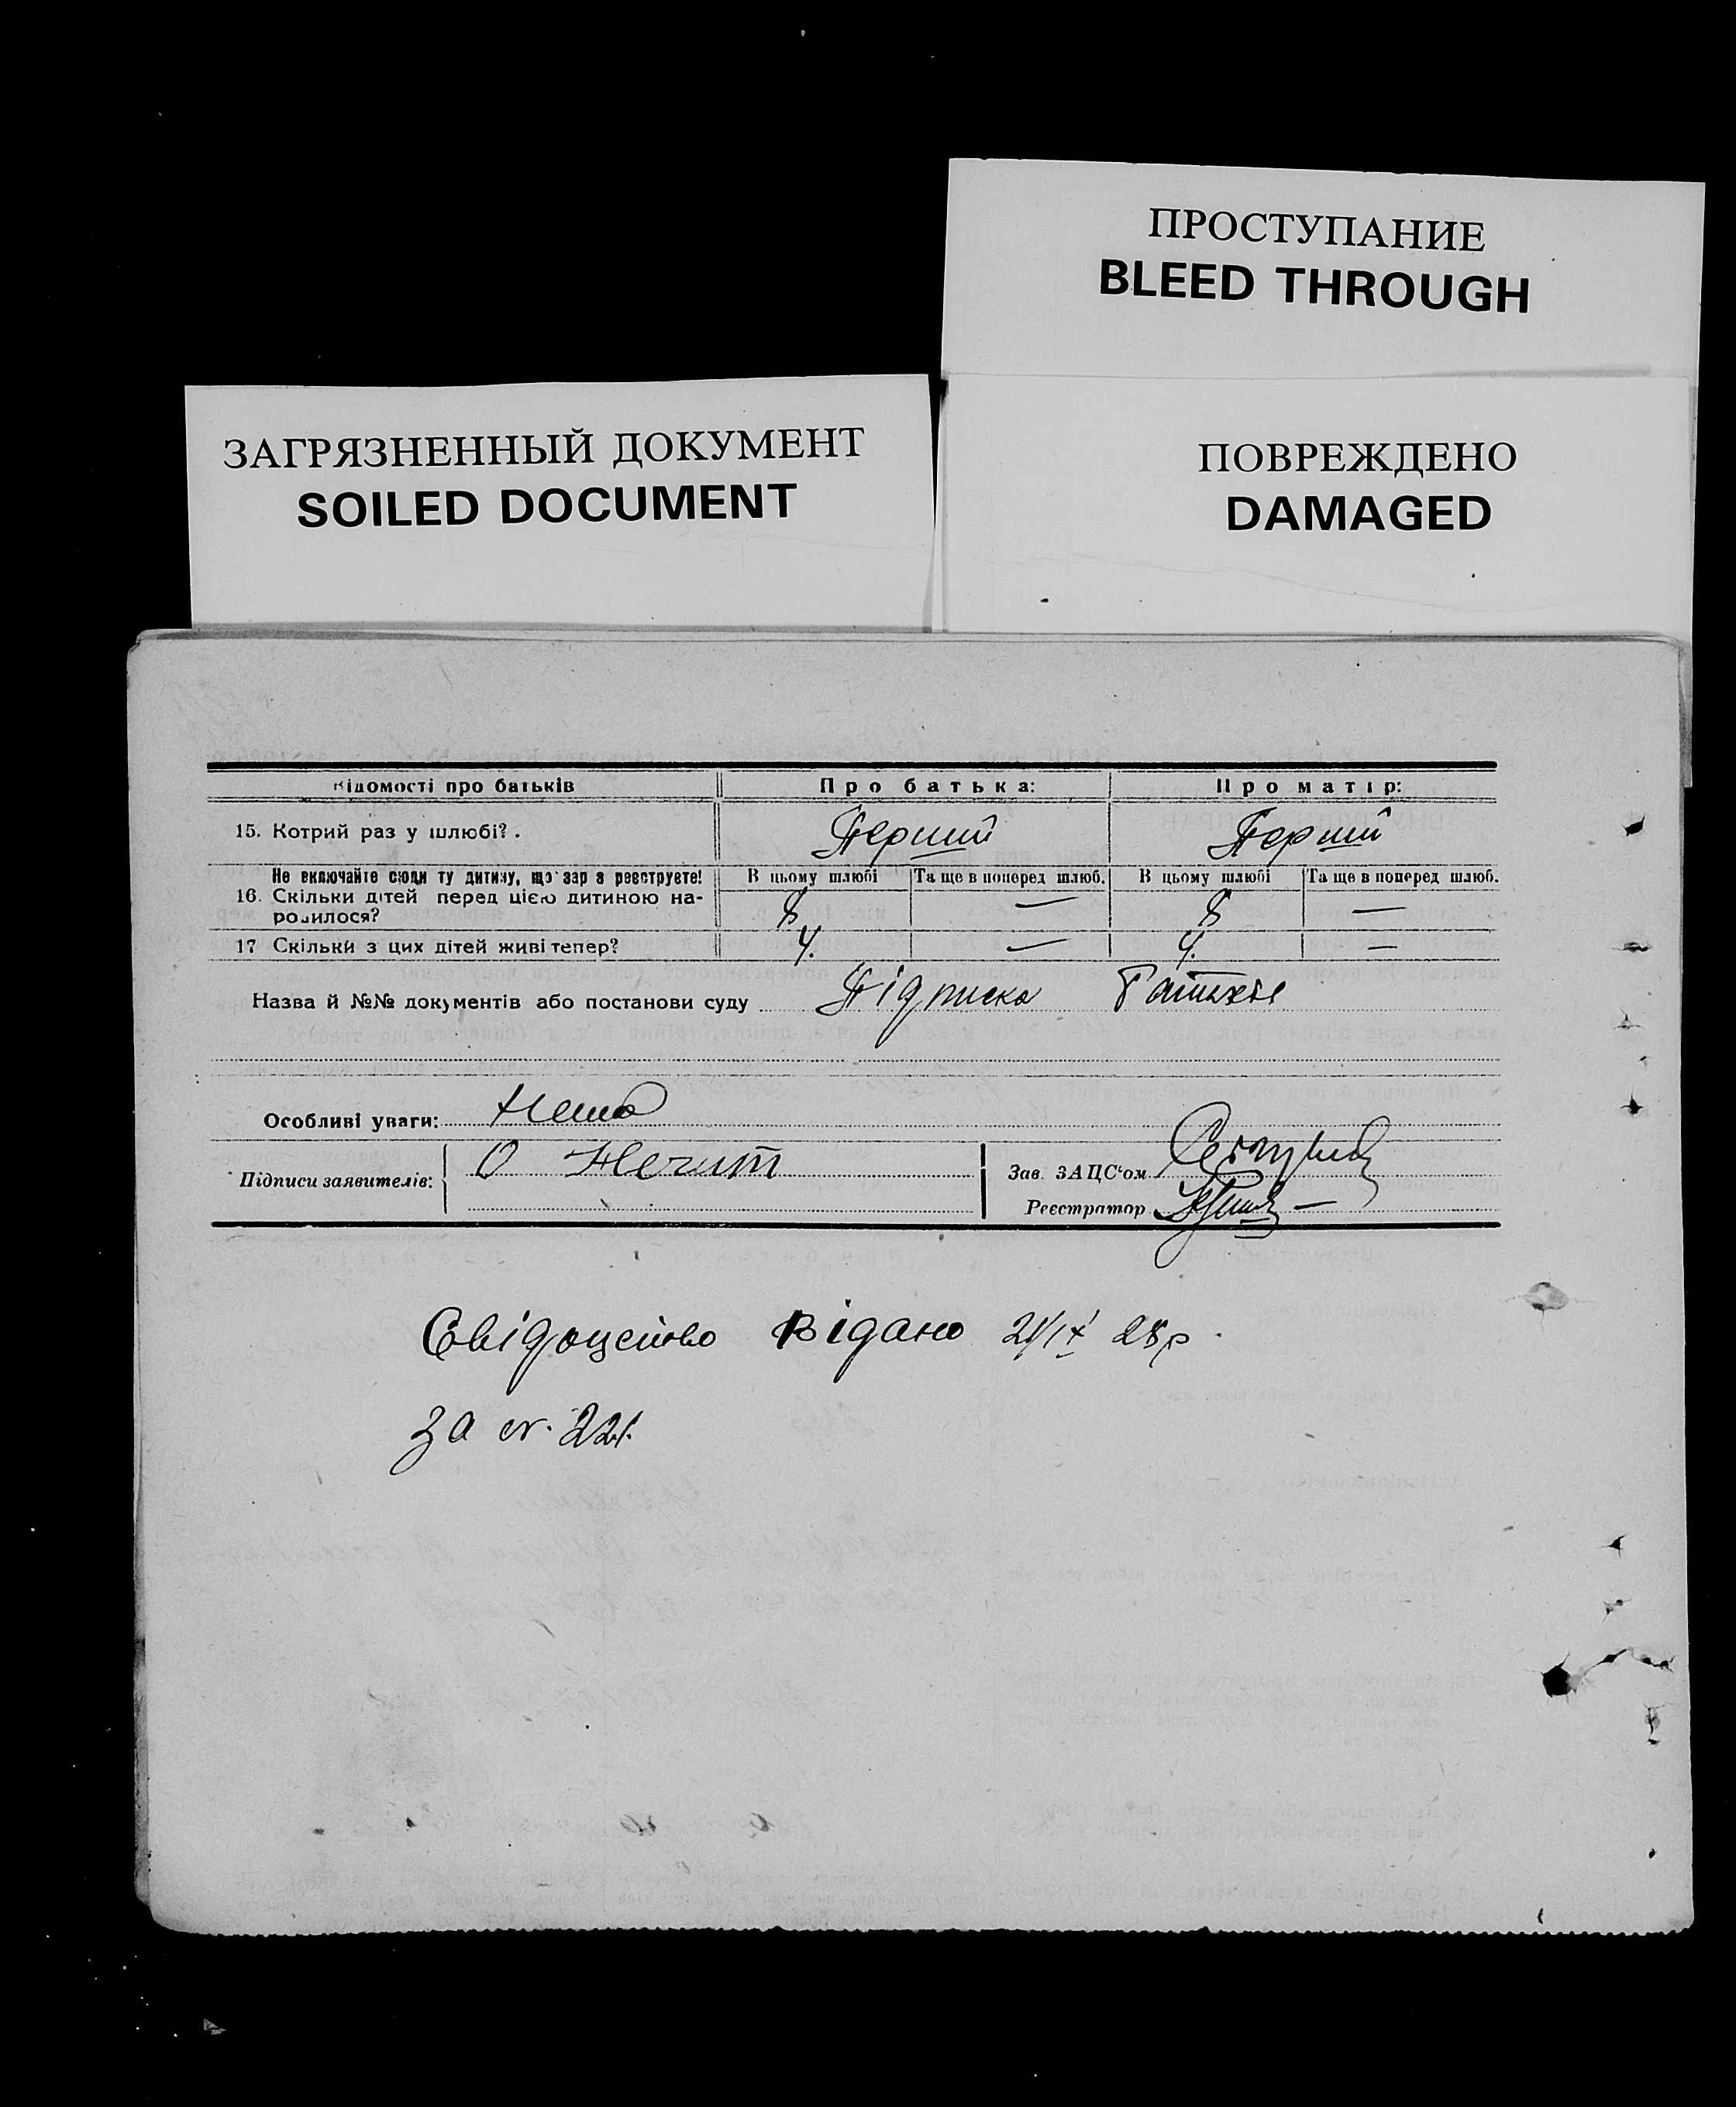 ПРОСТУПАНИЕ
BLEED THROUGH
ЗАГРЯЗНЕННЫЙ ДОКУМЕНТ
SOILED DOCUMENT
ПОВРЕЖДЕНО
DAMAGED
Відомості про батьків Про батька: Про матір:
15. Котрий раз у шлюбі? . Перший Перший
Не включайте сюди ту дитину, що зараз реєструєте! В цьому шлюбі Та ще в поперед шлюб. В цьому шлюбі Та ще в поперед шлюб.
16. Скільки дітей перед цією дитиною на-
родилося? 8 — 8 —
17 Скільки з цих дітей живі тепер? 4. — 4. —
Назва й №№ документів або постанови суду Підписка
Особливі уваги: Нема
Підписи заявителів: О Нечит Зав. ЗАЦС'ом
Реєстратор
Свідоцтво Видано 21/IX 28р.
За №. 221.